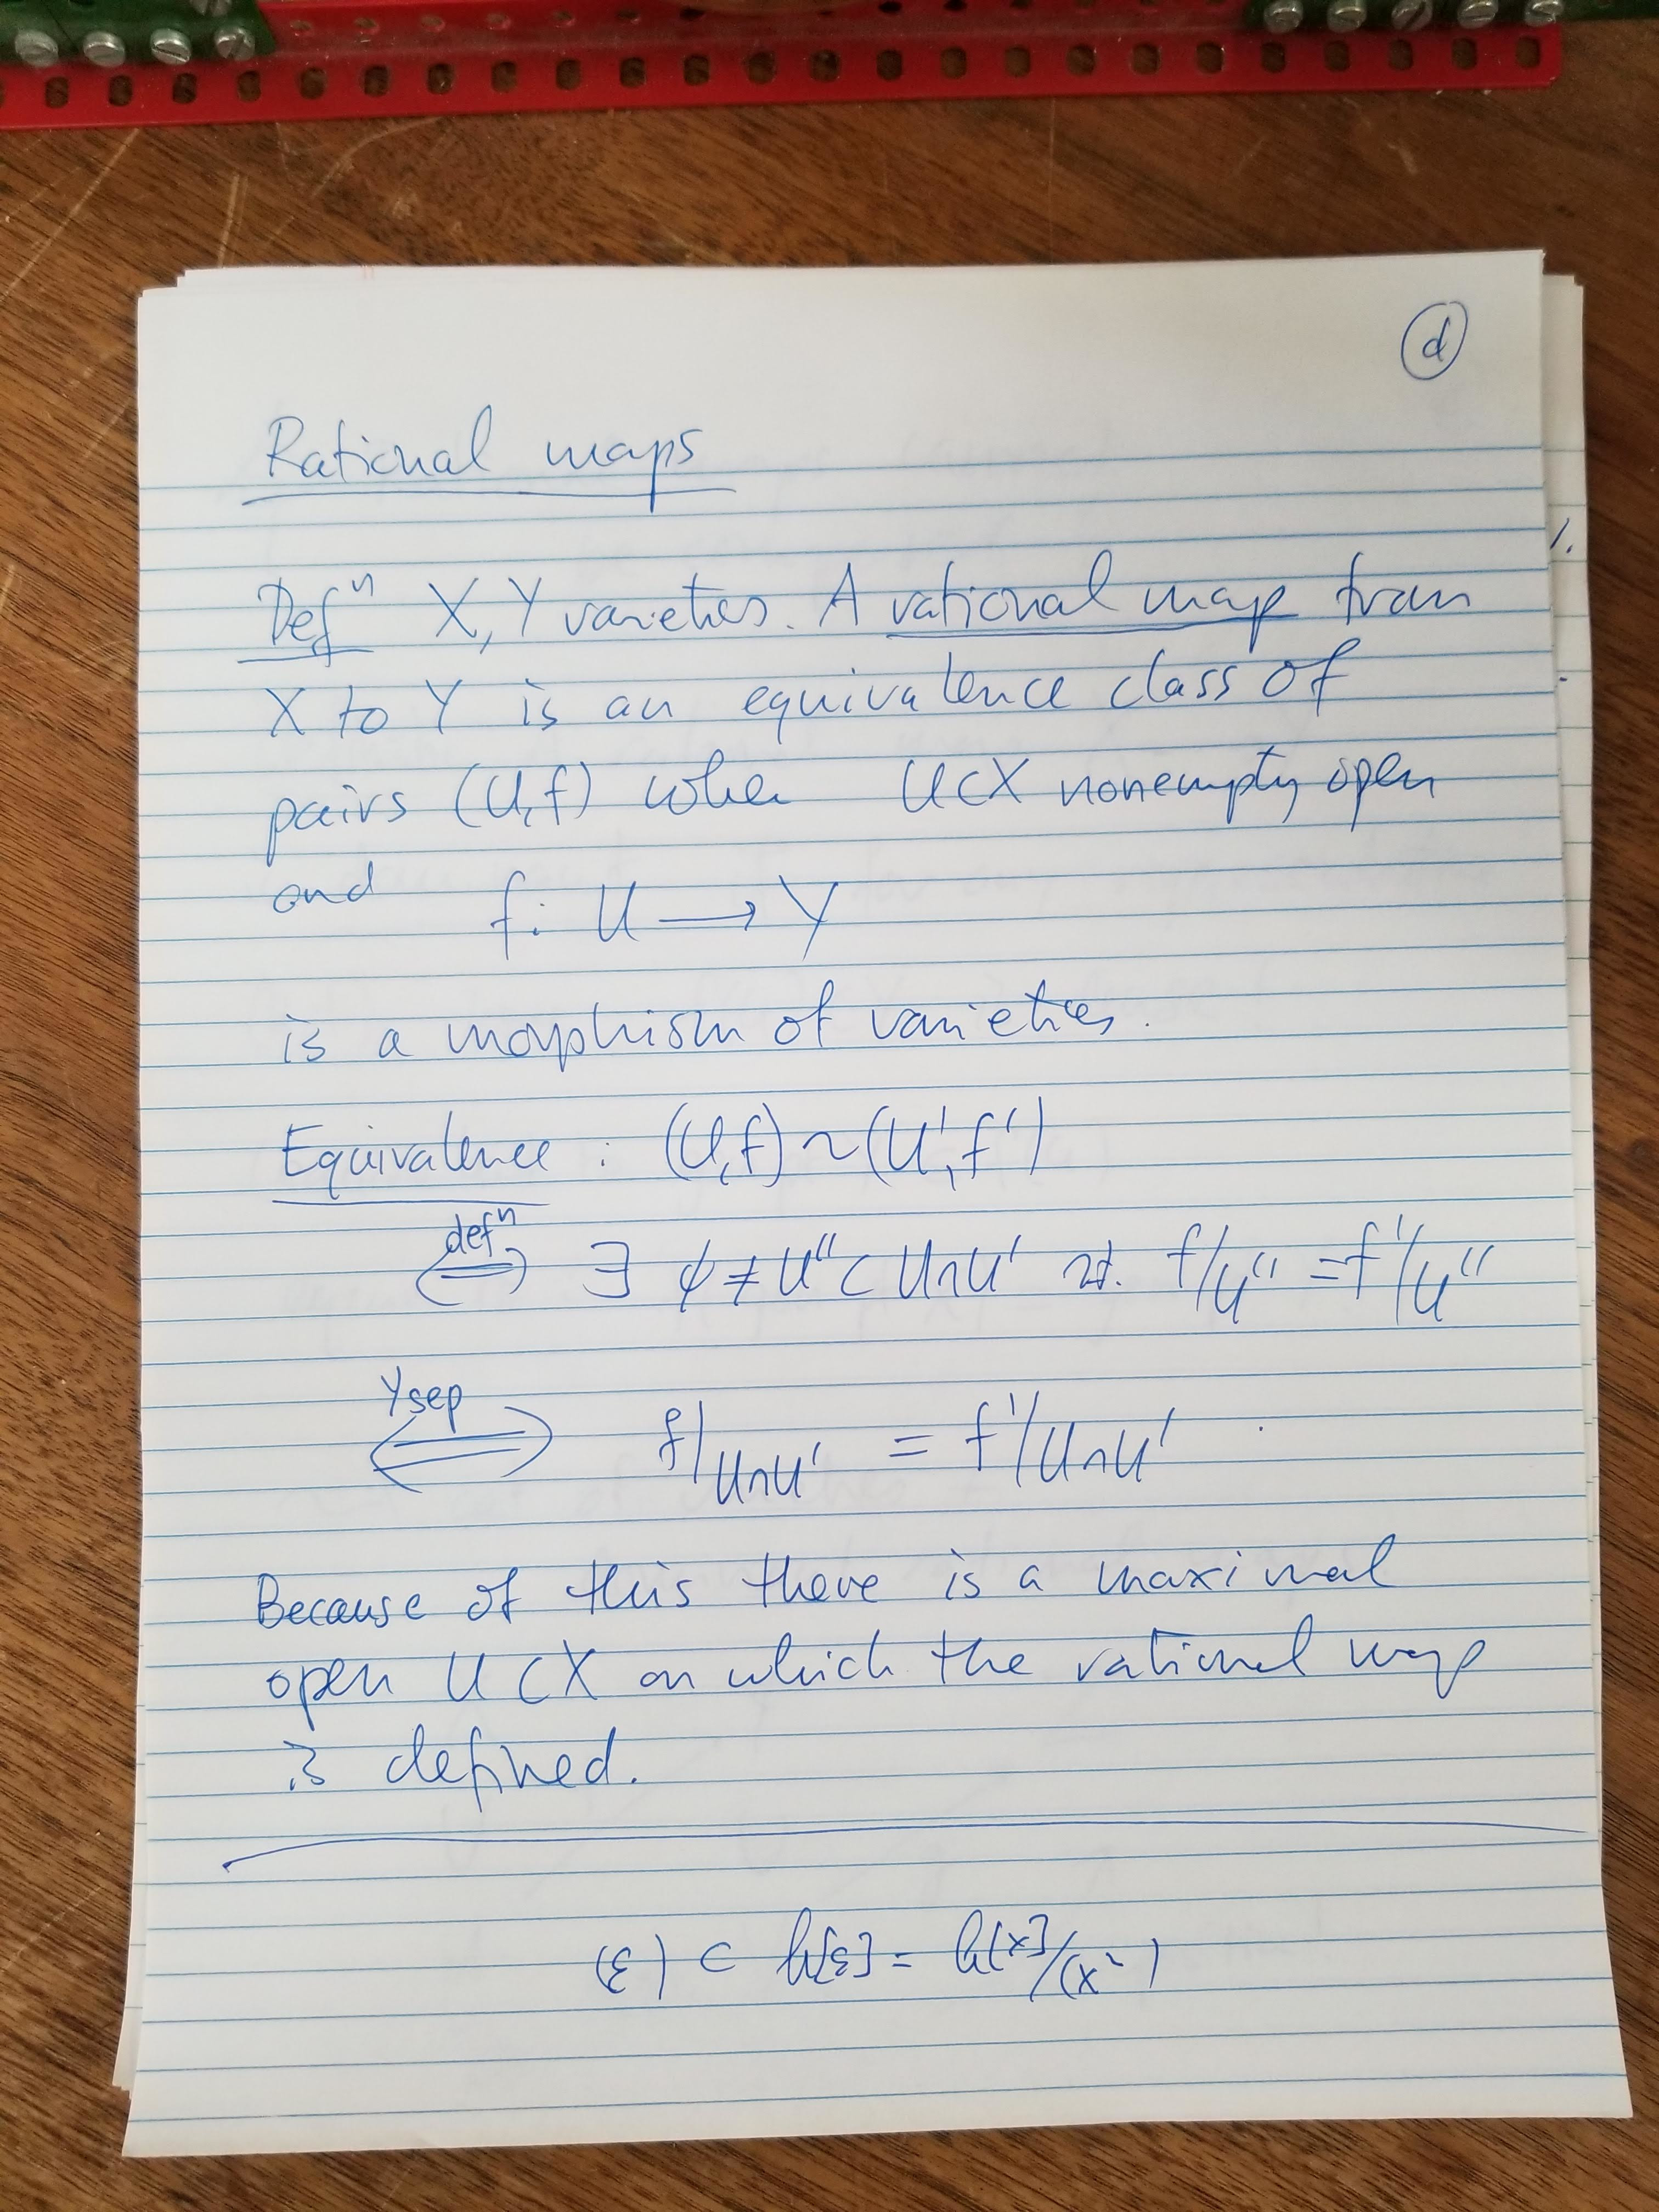 d
Rational maps
Defⁿ X, Y varieties. A rational map from
X to Y is an equivalence class of
pairs (U,f) where U⊂X nonempty open
and f: U ⟶ Y
is a morphism of varieties.
Equivalence : (U,f) ~ (U',f')
⟺ defⁿ ∃ ∅ ≠ U'' ⊂ U∩U' st. f|U'' = f'|U''
⟺ Y sep f|U∩U' = f'|U∩U'
Because of this there is a maximal
open U ⊂ X on which the rational map
is defined.
(ε) ⊂ k[ε] = k[x]/(x²)